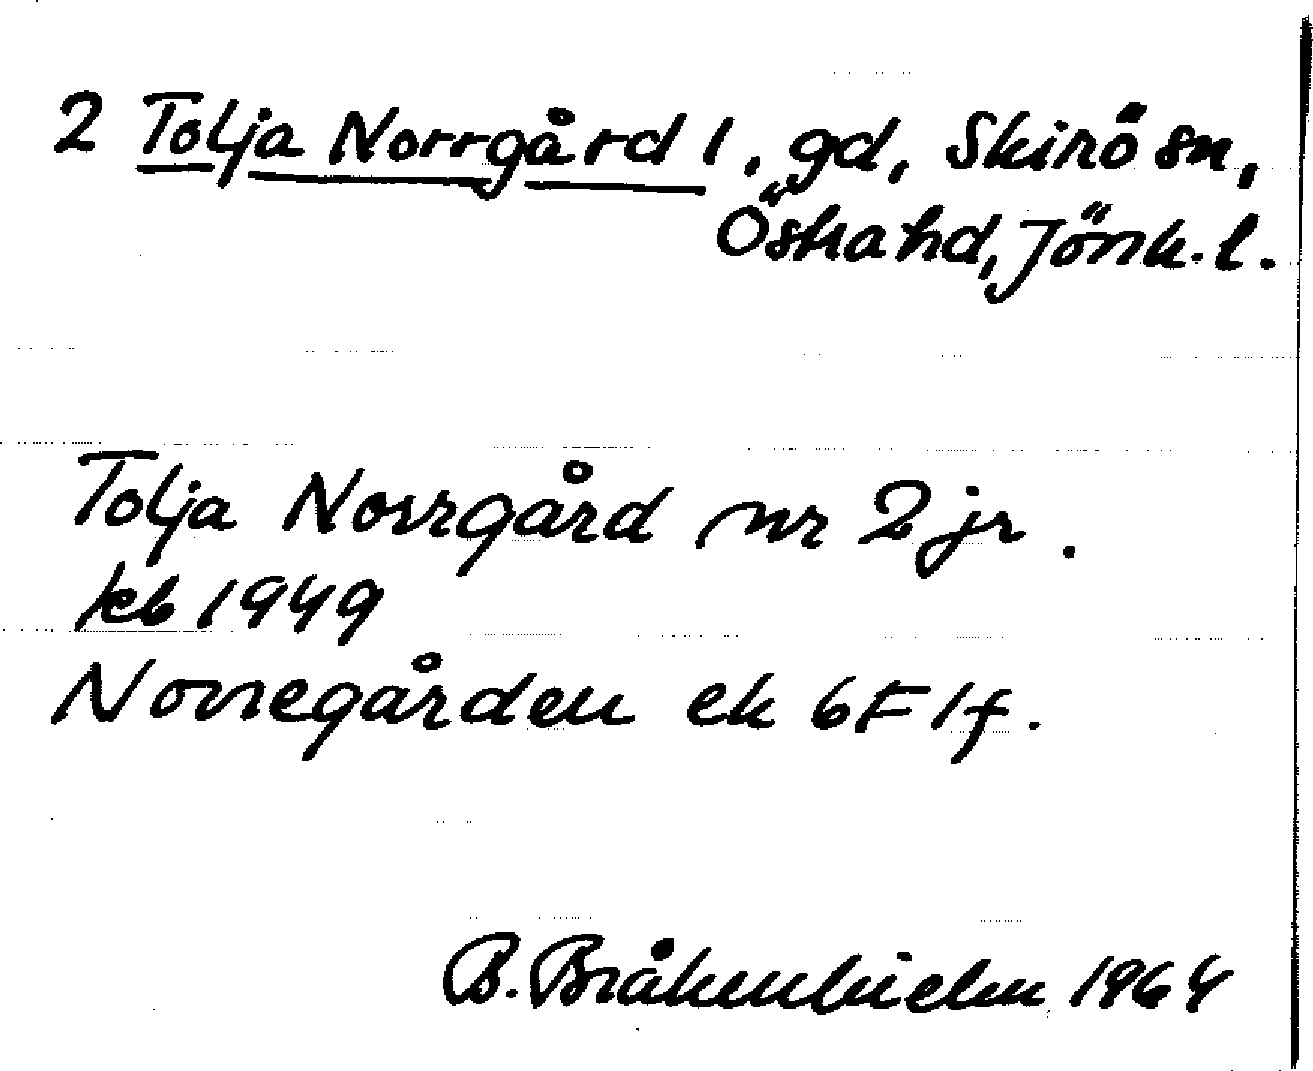 2 Tolja Norrgård 1, gd, Skirö sn,
Östra hd, Jönk. l.
Tolja Norrgård nr 2 jr.
kb 1949
Norregården ek 6F 1f.
B. Bråkenhielm 1964